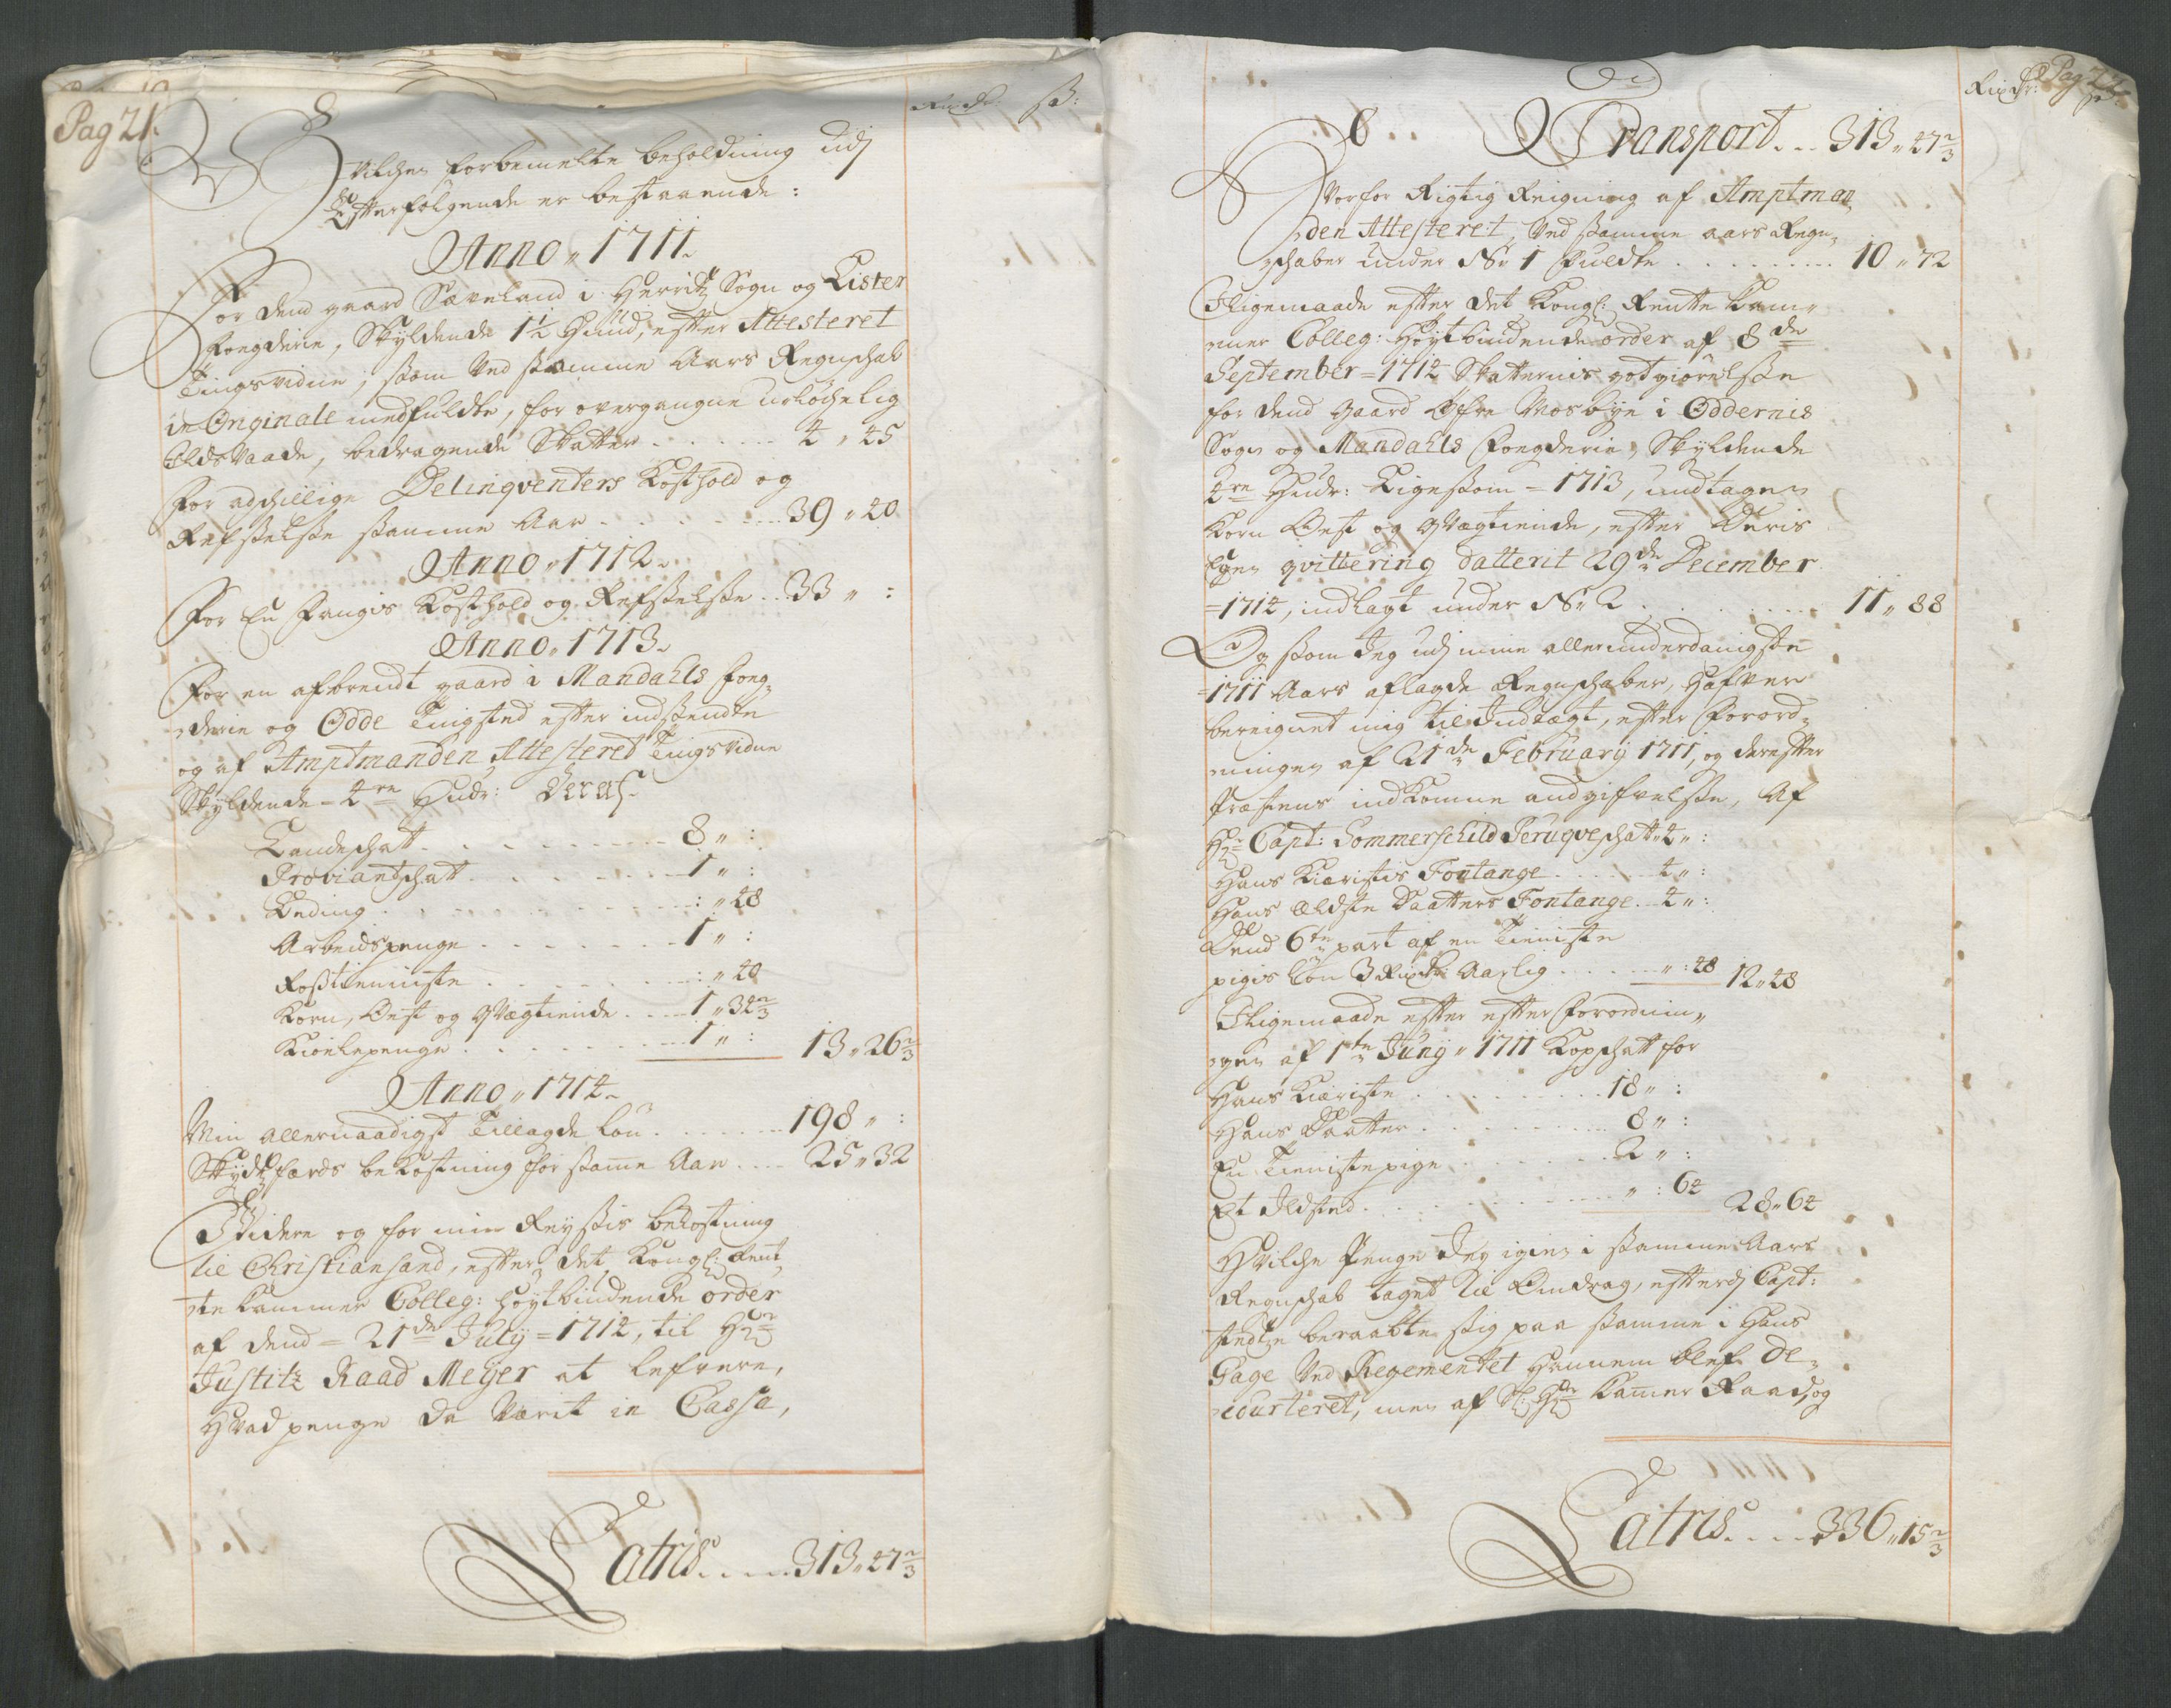 Pag 21.
Rixdr: ß:
Hvilchen forbemelte beholdning udj
Effterfølgende er bestaaende:
Anno 1711.
For dend gaard Sæveland i Herritz Sogn og Lister
Fogderie, Skyldende 1½ Huud, efter Attesteret
Tingsvidne, som ved samme Aars Regnschab
in Originale medfuldte, for overgangne ulöchelig
Ildsvaade, bedragende Skatter ...... 4 " 45
For adschillige Delinqventers Kosthold og
Refselse samme Aar ...... 39 " 40
Anno 1712.
For En Fangis Kosthold og Refselse .. 33 " :
Anno 1713.
For en afbrendt gaard i Mandahls Fog,
derie og Odde Tingsted efter indsendte
og af Amptmanden Attesteret Tingsvidne
Skyldende = 4re Hudr: Deraf.
Landschatt ...... 8 " :
Proviantschatt ...... 1 " :
Leding ...... : " 48
Arbeidspenge ...... 1 " :
Rostienniste ...... : " 40
Korn, Ost og Qvægtiende .... 1 " 34 2/3
Kiølepenge ...... 1 " : 13 " 26 2/3
Anno 1714.
Min allernaadigst Tillagde lön ...... 198 " :
Skydtzfærds bekostning for samme Aar .... 25 " 32
Videre og for min Reysis bekostning
til Christiansand, efter det Kongl: Rent,
te Cammer Colleg: höytbindende order
af dend = 21de July = 1714, til Hr
Justitz Raad Meyer at lefvere,
Hvad penge da Værit in Cassa,
Latris ..... 313 " 47 2/3
Pag 22
Rixdr: ß:
Transport ... 313 " 47 2/3
Hvorfor Rigtig Reigning af Amptman,
den Attesteret, Ved samme aars Regn,
schaber under No 1 fuldte ........ 10 " 72
Iligemaade efter det Kongl: Rentte Cam,
mer Colleg: Höytbindende order af 8de
September = 1714 Skatternis godtgiörelse
for dend Gaard Öfre Mosbye i Oddernis
Sogn og Mandahls Fogderie, Skyldende
4re Hudr: Ligesom = 1713, undtagen
Korn Ost og Qvægtiende, efter Deris
Egen qvittering datterit 29de December
= 1714, indlagt under No 2 ........ 11 " 88
Og som Jeg udj mine allerunderdanigste
= 1711 Aars aflagde Regnschaber, Hafver
bereignet mig til Indtægt, efter Forord,
ningen af 21de February 1711, og derefter
Præstens indkomne andgifvelse, Af
Hr Capt: Sommerschild Peruqveschatt 4 " :
Hans Kiæristis Fontange ..... 4 " :
Hans Eldste Daatters Fontange .. 4 " :
Dend 6te part af en Tieniste
pigis lön 3 Rixdr: Aarlig ..... " : 48 12 " 48
Iligemaade efter efter Forordnin,
gen af 1te Juny " 1711 Kopschatt for
Hans Kiæriste ........ 18 " :
Hans Daatter ........ 8 " :
En Tienistepige ....... 2 " :
Et Ildsted ........ " : 64 28 " 64
Hvilche Penge Jeg igien i samme Aars
Regnschab taget til Omdrag, efterdj Capt:
stedtze beraabte sig paa samme i Hans
Gage Ved Regementet Hannem blef de,
courteret, men af Sl: Hr Cammer Raad, og
Latris .... 336 " 15 2/3